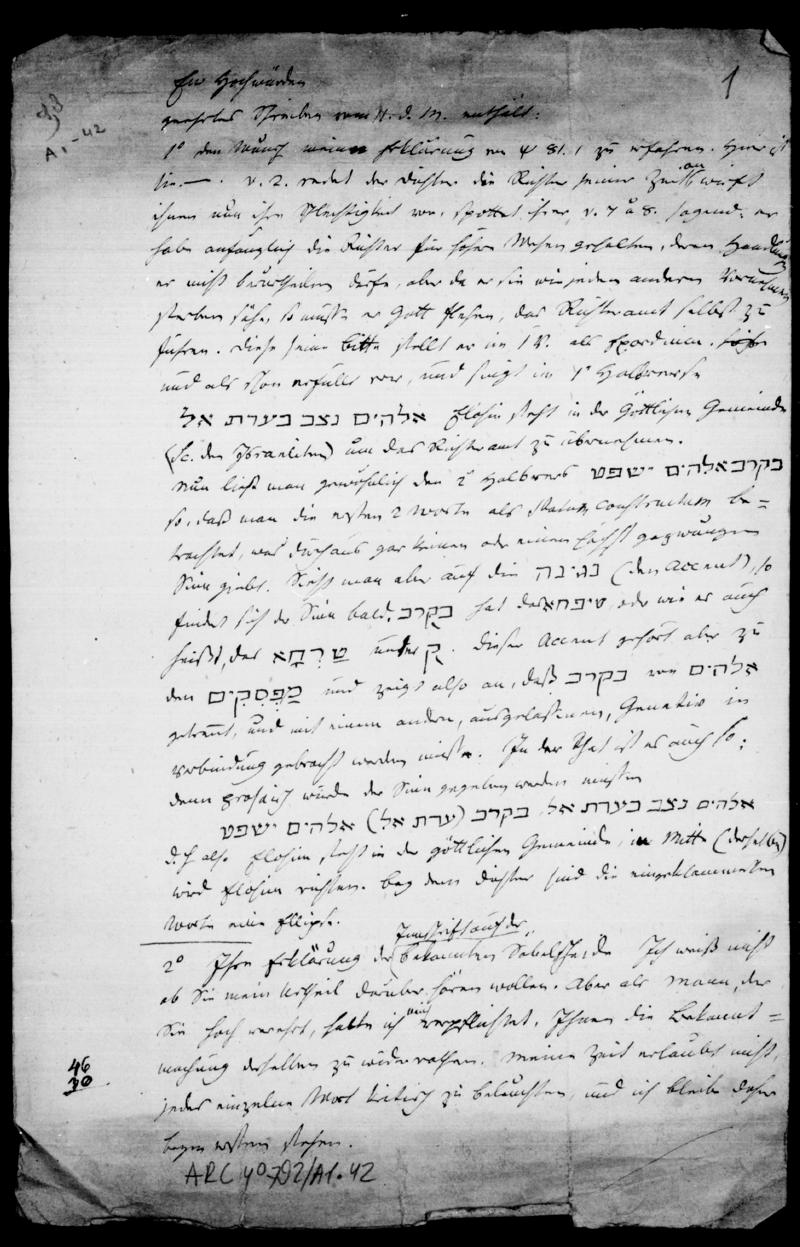 1
A 1-42
Ew Hochwürden
geehrtes Schreiben vom d. M. enthält:
1º den Wunsch meine Erklärung von ψ 81. 1 zu erfahren. Hier ist
sie. — . v. 2. redet der Dichter die Richter seiner Zeit an wirft
ihnen nun ihre Schlechtigkeit vor, spottet ihrer, v. 7 u 8. sagend: er
habe anfänglich die Richter für höhere Wesen gehalten, deren Handlung
er nicht beurtheilen dürfe, aber da er sie wie jeden anderen
sterben sähe, so müsse er Gott flehen, das Richteramt selbst zu
führen. Diese seine Bitte stellt er im 1 V. als Exordium
und als schon erfüllt vor, und singt im 1º Halbverse
אלהים נצב בעדת אל Elohim steht in der Göttlichen Gemeinde
(sc. den Israeliten) um das Richteramt zu übernehmen.
Nun ließt man gewöhnlich den 2º Halbvers בקרב אלהים ישפט
so, daß man die ersten 2 Worte als Statum constructum be=
trachtet, was durchaus gar keinen oder einen höchst gezwungenen
Sinn giebt. Sieht man aber auf die נגינה (den Accent), so
findet sich der Sinn bald. בקרב hat das טיפחא, oder wie er auch
heißt, das טַרְחָא unter קֶ. Dieser Accent gehört aber zu
den מַפְסִקִים und zeigt also an, daß בקרב von אלהים
getrennt, und mit einem andern, ausgelassenen, Genetiv in
Verbindung gebracht werden müsse. In der That ist es auch so;
denn prosaisch würde der Sinn gegeben werden müssen
אלהים נצב בעדת אל, בקרב (עדת אל) אלהים ישפט
d.h also Elohim steht in der göttlichen Gemeinde, in Mitte (derselben)
wird Elohim richten. Bey dem Dichter sind die eingeklammerten
Worte eine Ellipse.
2º Ihre Erklärung der Inschrift auf der bekannten Ich weiß nicht
ob Sie mein Urtheil darüber hören wollen. Aber als Mann, der
Sie hoch verehrt, halte ich mich verpflichtet, Ihnen die Bekannt=
machung derselben zu widerrathen. Meine Zeit erlaubt nicht,
jedes einzelne Wort kritisch zu beleuchten, und ich bleibe daher
beym ersten stehen.
46
ARC 4º 792/A1-42